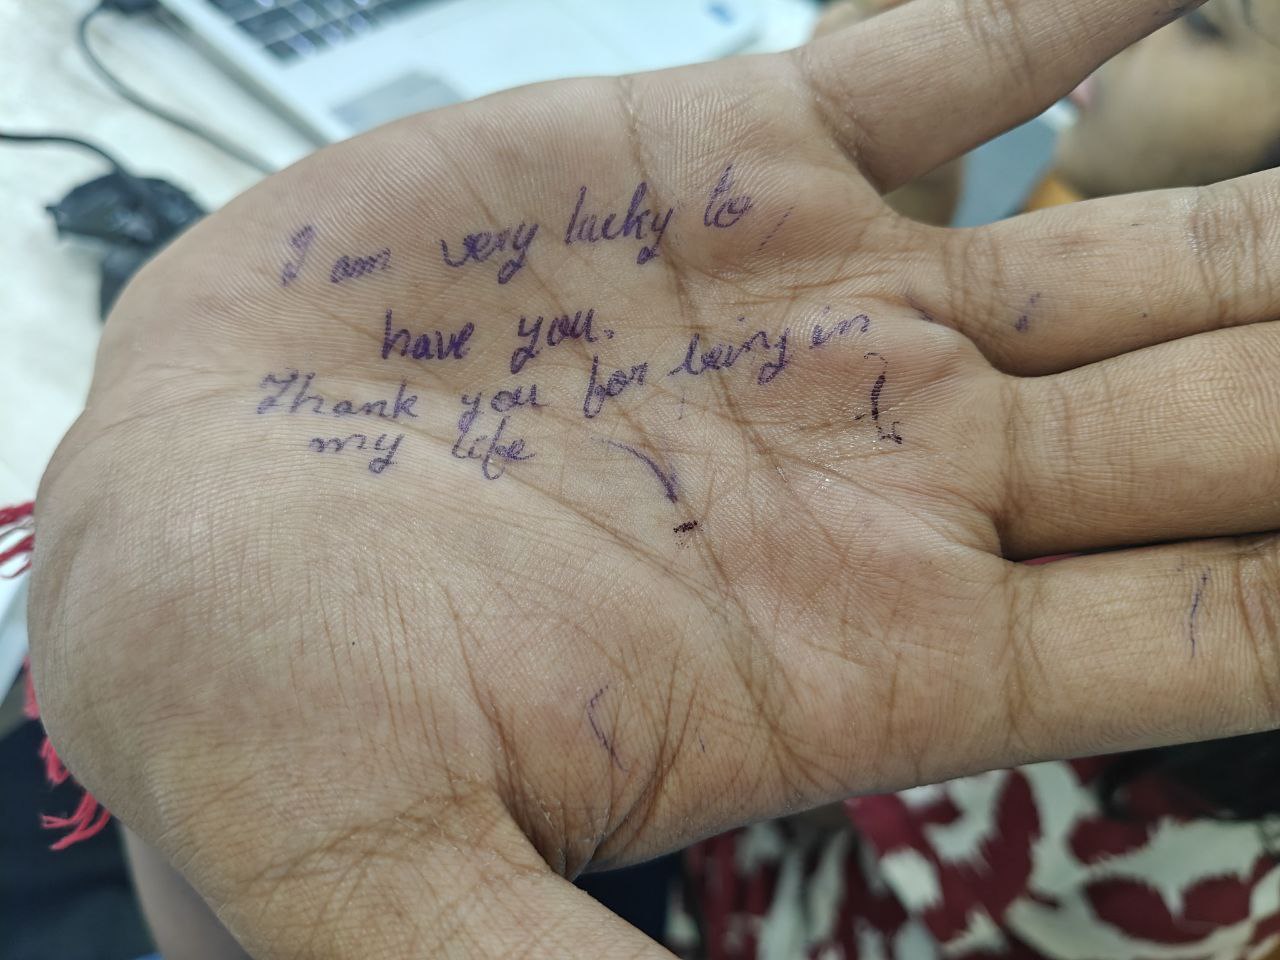 I am very lucky to
have you.
Thank you for being in
my life